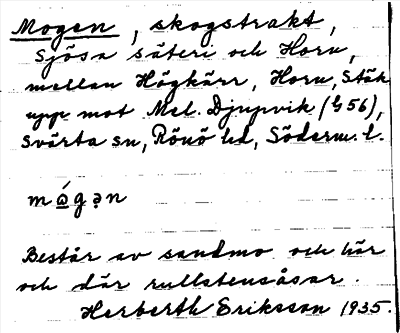 Mogen, skogstrakt,
Sjösa säteri och Horn,
mellan Högkärr, Horn, Stäk
upp mot Mel. Djupvik (G 56),
Svärta sn, Rönö hd, Söderm. l.
mǻgən
Består av sandmo och här
och där rullstensåsar.
Herberth Eriksson 1935.